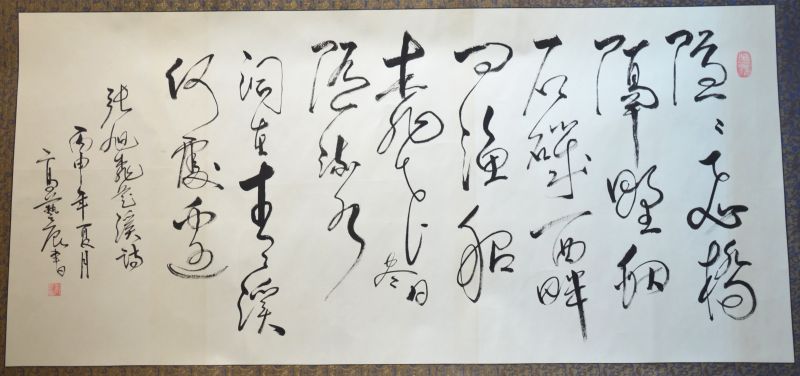 隱〻飛橋
隔野烟
石磯西畔
問漁船
桃花盡日
隨流水
洞在清溪
何處邊
張旭桃花溪詩
丙申年夏月
高藝